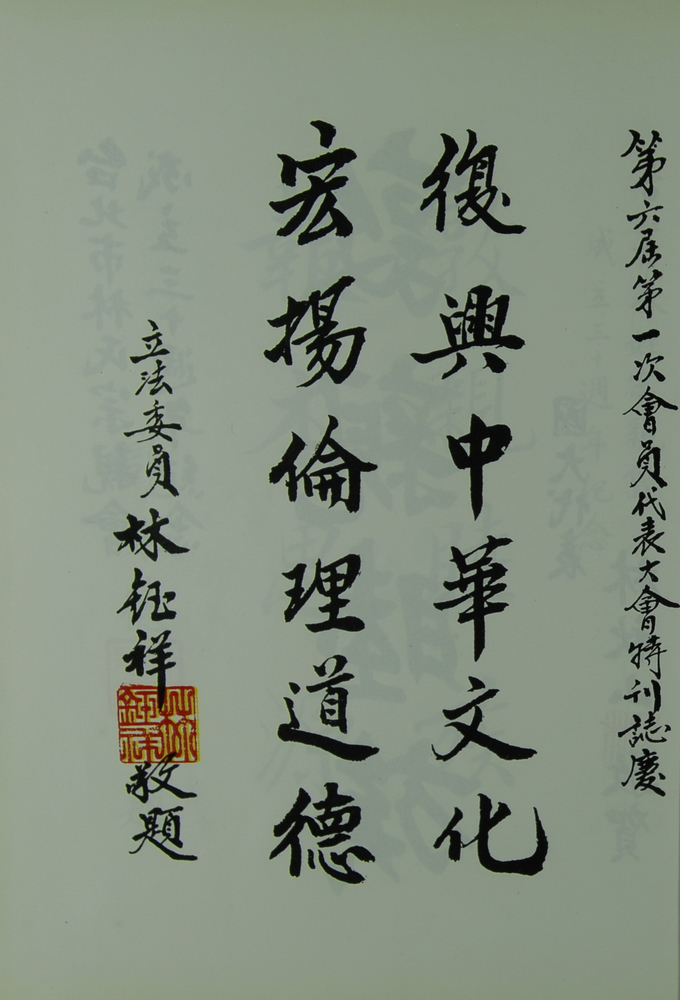 第六屆第一次會員代表大會特刊誌慶
復興中華文化
宏揚倫理道德
立法委員 林鈺祥 敬題
林鈺祥